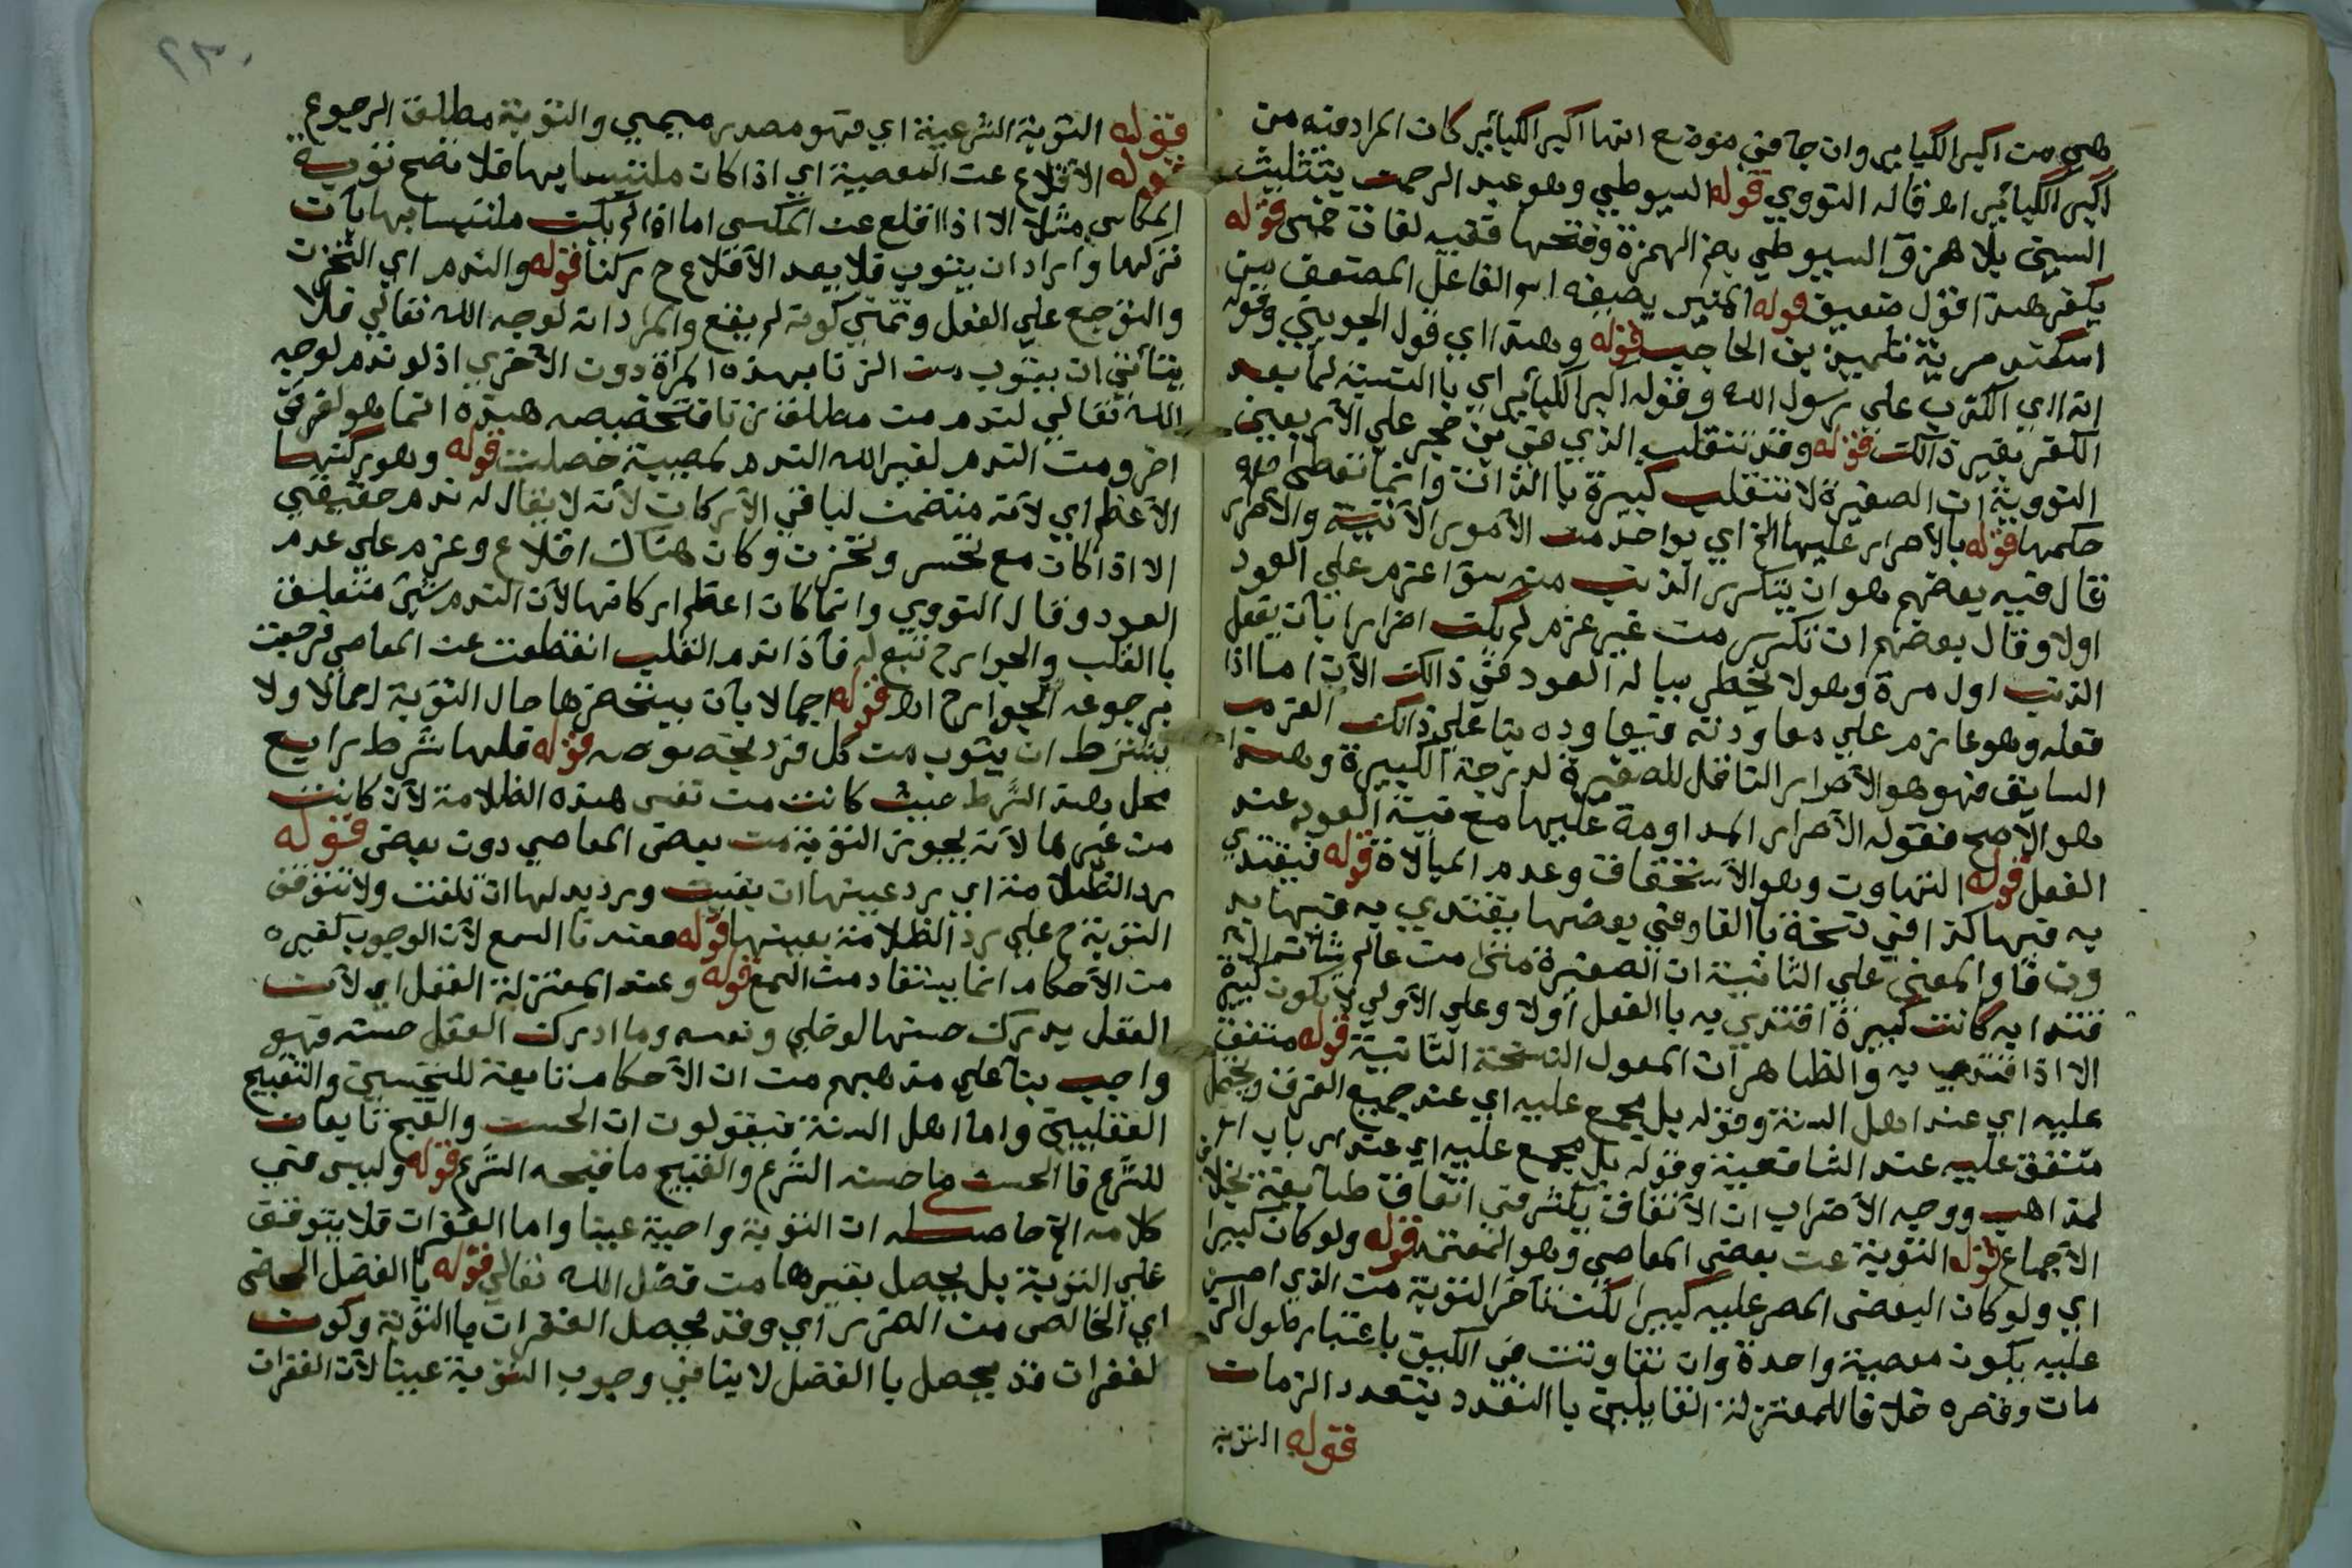 هي من اكبر الكباير وان جا في موضع انها اكبر الكبائر كان المراد منه من
اكبر الكبائر اه قاله النووي قوله السيوطي وهو عبد الرحمن بتثليث
السين بلا همزة والسيوطي بضم الهمزة وفتحها ففيه لغات خمس قوله
يكفر هذا قول ضعيف قوله المنير بصيغة اسم الفاعل المصنف من
اسكندرية تلميذ بن الحاجب قوله وهذا اي قول الجويني وقوله
انه اي الكذب على رسول الله وقوله اكبر الكبائر اي با النسبة لما بعد
الكفر بغير ذالك قوله وقد تنقلب الذي حقق بن حجر على الاربعين
النووية ان الصغيرة لا تنقلب كبيرة با الذات وانما تعطى
حكمها قوله بالاصرار عليها الخ اي بواحد من الامور الآتية والاصرار
قال فيه بعضهم هو ان يتكرر الذنب منه سوا عزم على العود
اولا وقال بعضهم ان تكرر من غير عزم لم يكن اصرارا بان يفعل
الذنب اول مرة وهو لا يخطر بباله العود في ذالك الآن اما اذا
فعله وهو عازم على معاودته فيعاوده بنا على ذالك العزم
السابق فهو هو الاصرار الناقل للصغيرة لدرجة الكبيرة وهذا
هو الاصح فقوله الاصرار المداومة عليها مع نية العود عند
الفعل قوله التهاون وهو الاستخفاف وعدم المبالاة قوله فيقتدي
به فيها كذا في نسخة با الفا وفي بعضها يقتدي به فيها بد
ون فا والمعنى على الثانية ان الصغيرة متى من عالم شأنه
فتدا به كانت كبيرة اقتدي به با الفعل اولا وعلى الاولى لا تكون كبيرة
الا اذا اقتدي به والظاهر ان المعول النسخة الثانية قوله متفق
عليه اي عند اهل السنة وقوله بل مجمع عليه اي عند جميع الفرق ويحتمل
متفق عليه عند الشافعية وقوله بل مجمع عليه اي عند ارباب
المذاهب ووجه الاضراب ان الاتفاق يكثر في اتفاق طايفة بخلاف
الاجماع قوله التوبة عن بعض المعاصي وهو المعتمد قوله ولو كان كبيرا
اي ولو كان البعض المصر عليه كبيرا لكن تأخر التوبة من الذي اصر
عليه يكون معصية واحدة وان تفاوتت في الكيف باعتبار طول الز
مان وقصره خلافا للمعتزلة القايلين با التعدد بتعدد الزمان
قوله التوبة
٢٣٠
قوله التوبة الشرعية اي فهو مصدر ميمي والتوبة مطلق الرجوع
قوله الاقلاع عن المعصية اي اذا كان ملتبسا بها فلا تصح توبة
المكاس مثلا الا اذا اقلع عن المكس اما اذا لم يكن ملتبسا بها بان
تركها واراد ان يتوب فلا يعد الاقلاع ح ركنا قوله والندم اي التحزن
والتوجع على الفعل وتمني كونه لم يقع والمراد انه لوجه الله تعالى فلا
يتأتى ان يتوب من الزنا بهذه المرأة دون الاخرى اذ لو ندم لوجه
الله تعالى لندم من مطلق زنا فتخصيصه هذه انما هو لغرض
اخر ومن الندم لغير الله الندم لمصيبة حصلت قوله وهو ركنها
الاعظم اي لانه متضمن لباقي الاركان لانه لا يقال له ندم حقيقي
الا اذا كان مع تحسر وتحزن وكان هناك اقلاع وعزم على عدم
العود وقال النووي وانما كان اعظم اركانها لان الندم شئ متعلق
با القلب والجوارح تبع له فاذا ندم القلب انقطعت عن المعاصي فرجعت
برجوعه الجوارح اه قوله اجمالا بان يستحضرها حال التوبة اجمالا ولا
يشترط ان يتوب من كل فرد بخصوصه قوله فلها شرط رابع
محل هذا الشرط حيث كانت من نفس هذه الظلامة لان كانت
من غيرها لانه يجوز التوبة من بعض المعاصي دون بعض قوله
رد الظلامة اي رد عينها ان بقيت ورد بدلها ان تلفت ولا تتوقف
التوبة ح على رد الظلامة بعينها قوله فعندنا السمع لان الوجوب كغيره
من الاحكام انما يستفاد من السمع قوله وعند المعتزلة العقل اي لان
العقل يدرك حسنها لو خلي ونفسه وما ادرك العقل حسنه فهو
واجب بنا على مذهبهم من ان الاحكام تابعة للتحسين والتقبيح
العقليين واما اهل السنة فيقولون ان الحسن والقبح تابعان
للشرع فا الحسن ما حسنه الشرع والقبيح ما قبحه الشرع قوله وليس في
كلامه الخ حاصله ان التوبة واجبة عينا واما الغفران فلا يتوقف
على التوبة بل يحصل بغيرها من فضل الله تعالى قوله با الفضل المحض
اي الخالص من الضرر اي وقد يحصل الغفران با التوبة وكون
لغفران قد يحصل با الفضل لا ينافي وجوب التوبة عينا لان الغفران